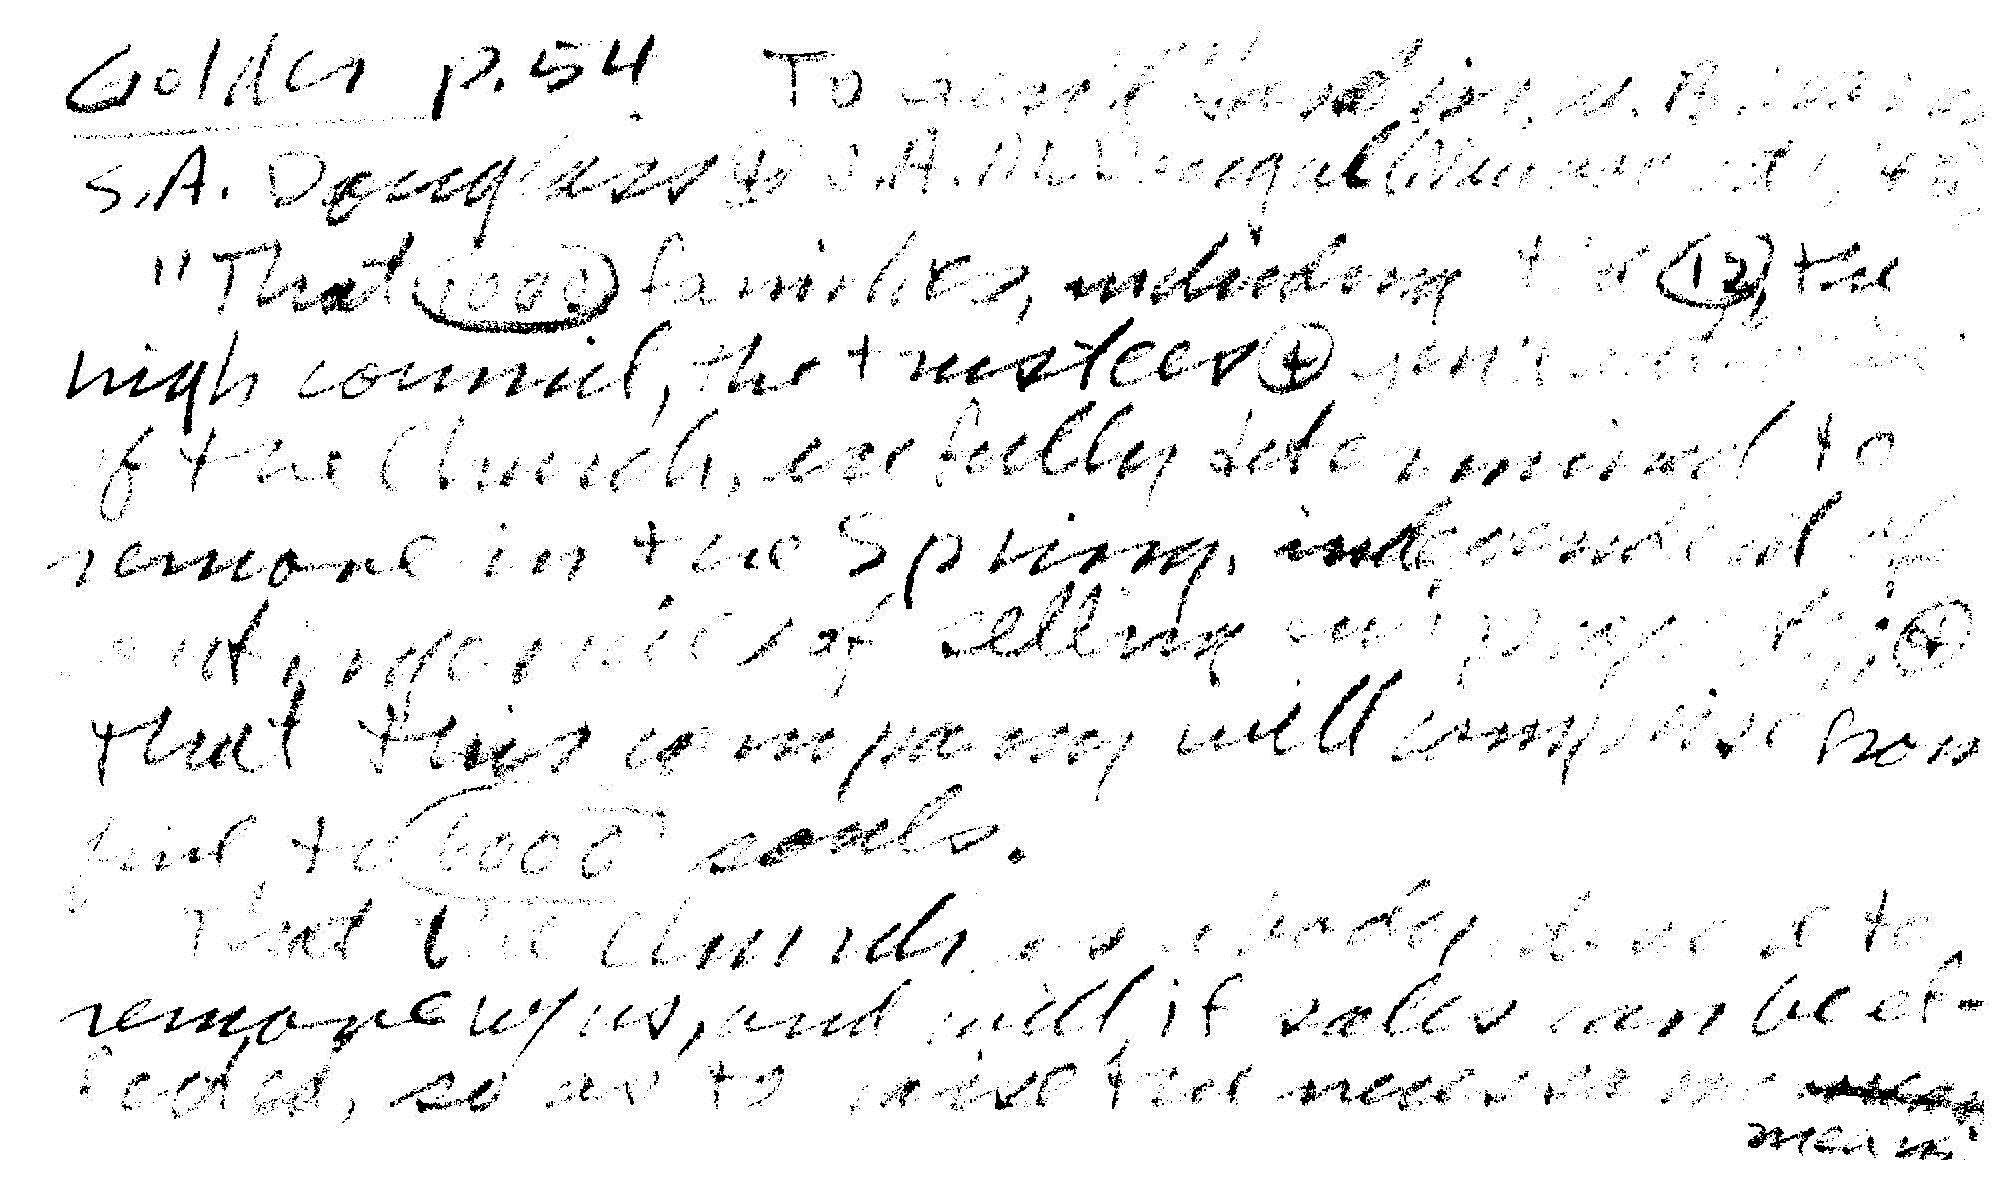 Golder p.54 To Gen'l Hardin, W.
S.A. Douglass & J.A. McDougal
"That 1000 families, including the 12, the
high council, the trustees & gen'l
of the Church, are fully determined to
remove in the Spring, independent of
contingencies of selling our property; &
that this company will comprise from
five to 6000 souls.
That the Church, as a body, desire to
remove w/us, and will, if sales can be ef-
fected, so as to raise the necessary
means